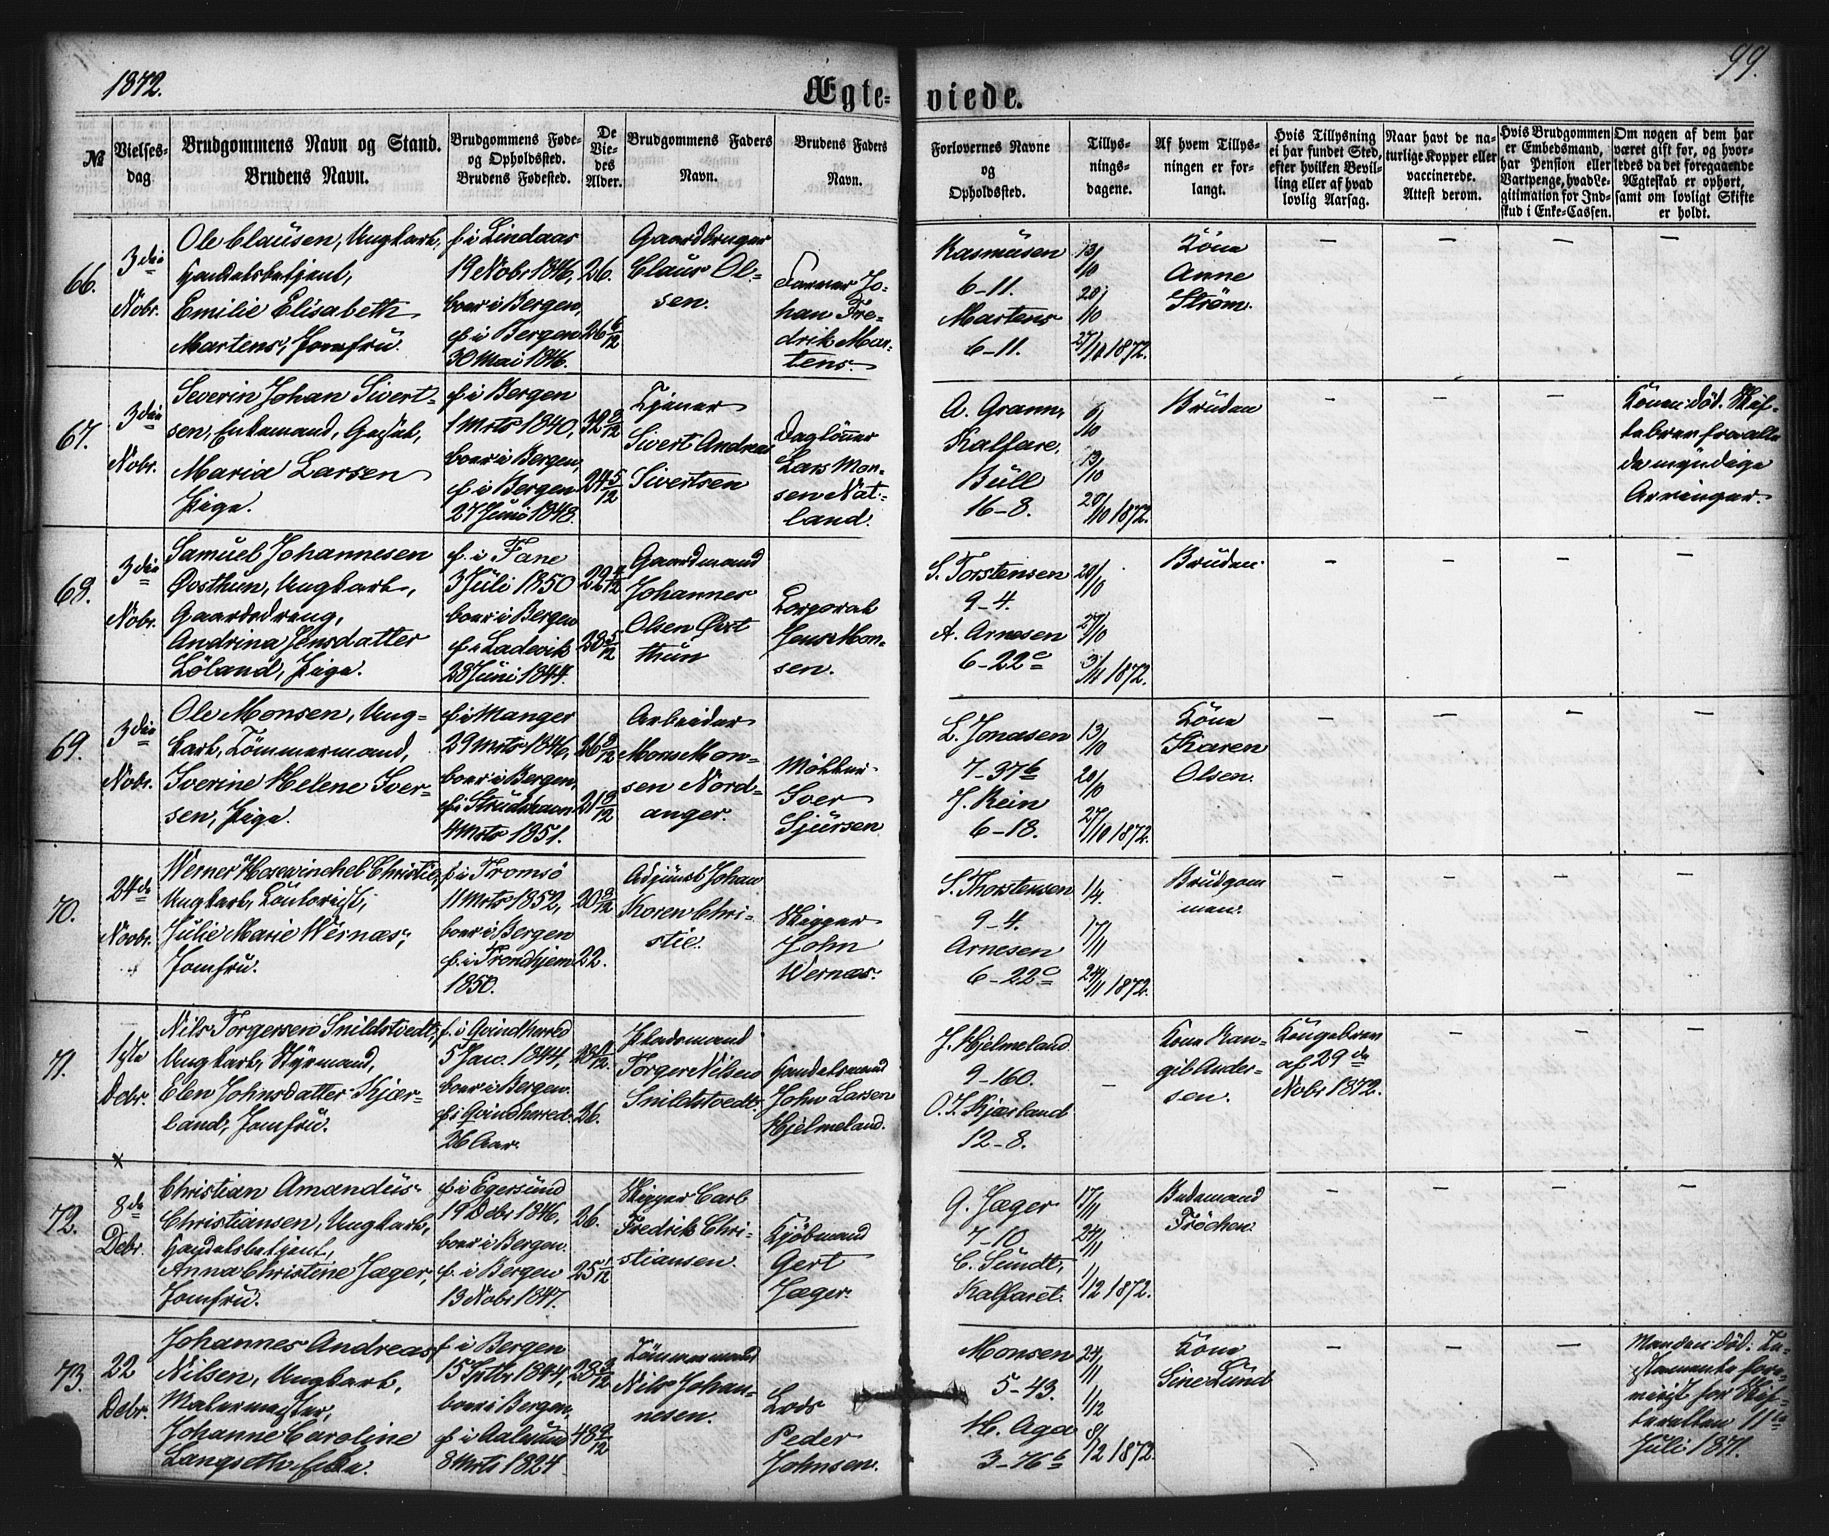 1872.
Ægte-
viede.
99.
№
Vielses-
dag.
Brudgommens Navn og Stand.
Brudens Navn.
Brudgommens Føde-
og Opholdssted.
Brudens Fødested.
De
Vie-
des
Alder.
Brudgommens Faders
Navn.
Brudens Faders
Navn.
Forlovernes Navne
og
Opholdssted.
Tillys-
nings-
dagene.
Af hvem Tillys-
ningen er for-
langt.
Hvis Tillysning
ei har fundet Sted,
efter hvilken Bevil-
ling eller af hvad
lovlig Aarsag.
Naar havt de na-
turlige Kopper eller
vaccinerede.
Attest derom.
Hvis Brudgommen
er Embedsmand,
har Pension eller
Vartpenge, hvad Le-
gitimation for Ind-
skud i Enke-Cassen.
Om nogen af dem har
været gift før, og hvor-
ledes da det foregaaende
Ægteskab er ophørt,
samt om lovligt Skifte
er holdt.
66.
3die
Nobr.
Ole Clausen, Ungkarl,
Handelsbetjent,
Emilie Elisabeth
Martens, Jomfru.
f. i Lindaas
19 Nobr 1846,
boer i Bergen,
f. i Bergen
30 Mai 1846.
26.
26 6/12
Gaardbruger
Claus Ol-
sen.
Farver Jo-
han Fre-
drik Mar-
tens.
Rasmusen
6-11.
Martens
6-11.
13/10
20/10
27/10 1872.
Kone
Anne
Strøm.
67.
3die
Nobr.
Severin Johan Sivert-
sen, Enkemand,
Maria Larsen
Pige.
f. i Bergen
1 Mrts 1840,
boer i Bergen,
f. i Bergen
27 Juni 1848.
32 8/12
24 5/12
Tjener
Sivert Andreas
Sivertsen
Daglønner
Lars Mon-
sen Nat-
land.
A. Grann,
Kalfare,
Büll
16-8.
6/10
13/10
20/10 1872.
Bruden
Konen død. Skif-
tebrev fra alle
de myndige
Arvinger.
68.
3die
Nobr.
Samuel Johannesen
Øvsthun, Ungkarl,
Gaardsdreng,
Andrina Jensdatter
Løland, Pige.
f. i Fane
3 Juli 1850
boer i Bergen
f. i Ladevik
28 Juni 1844.
22 4/12
28 5/12
Gaardmand
Johannes
Olsen Øvst
thun
Corporal
Jens Mon-
sen.
S. Torstensen
9-4.
A. Arnesen
6-22c
20/10
27/10
3/11 1872.
Bruden
69.
3die
Nobr.
Ole Monsen, Ung-
karl, Tømmermand,
Iverine Helene Iver-
sen, Pige.
f. i Manger
29 Mrts 1846,
boer i Bergen,
f. i Strudshavn
4 Mrts 1851.
26 8/12
21 8/12
Arbeider
Mons Mon-
sen Nord-
anger.
Møller
Iver
Sjursen
L. Jonasen
7-37b
J. Rein
6-18.
13/10
20/10
27/10 1872.
Kone
Karen
Olsen.
70.
24de
Novbr.
Werner Hosewinckel Christie,
Ungkarl, Contorist,
Julie Marie Wernæs,
Jomfru.
f. i Tromsø
11 Mrts 1852,
boer i Bergen
f. i Trondhjem
1850.
20 8/12
22.
Adjunct Johan
Koren Chri-
stie.
Skipper
John
Wernæs.
S. Thorstensen
9-4.
Arnesen
6-22c
17/11
24/11 1872.
Brudgom
men.
71.
1ste
Debr.
Nils Torgersen Snildstvedt,
Ungkarl, Styrmand,
Elen Johnsdatter Kjær-
land, Jomfru.
f. i Qvindherred
5 Jan. 1844,
boer i Bergen.
f. i Qvindherred.
26 Aar.
26.
Torger Nilsen
Snildstvedt.
Handelsmand
John Larsen
Hjelmeland.
J. Hjelmeland
9-160.
O. T. Kjærland
12-8.
Kone Ran-
gil Ander-
sen.
Kongebrev
af 29de
Nobr 1872.
72.
8de
Debr.
Christian Amandus
Christiansen, Ungkarl,
Handelsbetjent,
Anna Christine Jæger,
Jomfru.
f. i Egersund
19 Debr 1846,
boer i Bergen.
f. i Bergen
13 Nobr 1847.
26.
25 1/12
Skipper Carl
Fredrik Chri-
stiansen.
Kjøbmand
Gert
Jæger.
G. Jæger
7-10
C. Sundt,
Kalfaret.
17/11
24/11
1/12 1872.
Budemand
Trøchen.
73.
22
Debr.
Johannes Andreas
Nilsen, Ungkarl,
Malermester,
Johanne Caroline
Langseth Enke.
f. i Bergen
15 Sptbr 1844,
boer i Bergen,
f. i Aalesund
8 Mrts 1824.
28 3/12
48 9/12
Tømmermand
Nils Johan-
nesen.
Lods
Peder
Johnsen.
Monsen
5-43.
H. Aga
3-76b
24/11
1/12
8/12 1872.
Kone
Sine Lund
Manden død. Te-
stamente fore-
viist for Skif-
teretten 11te
Juli 1871.